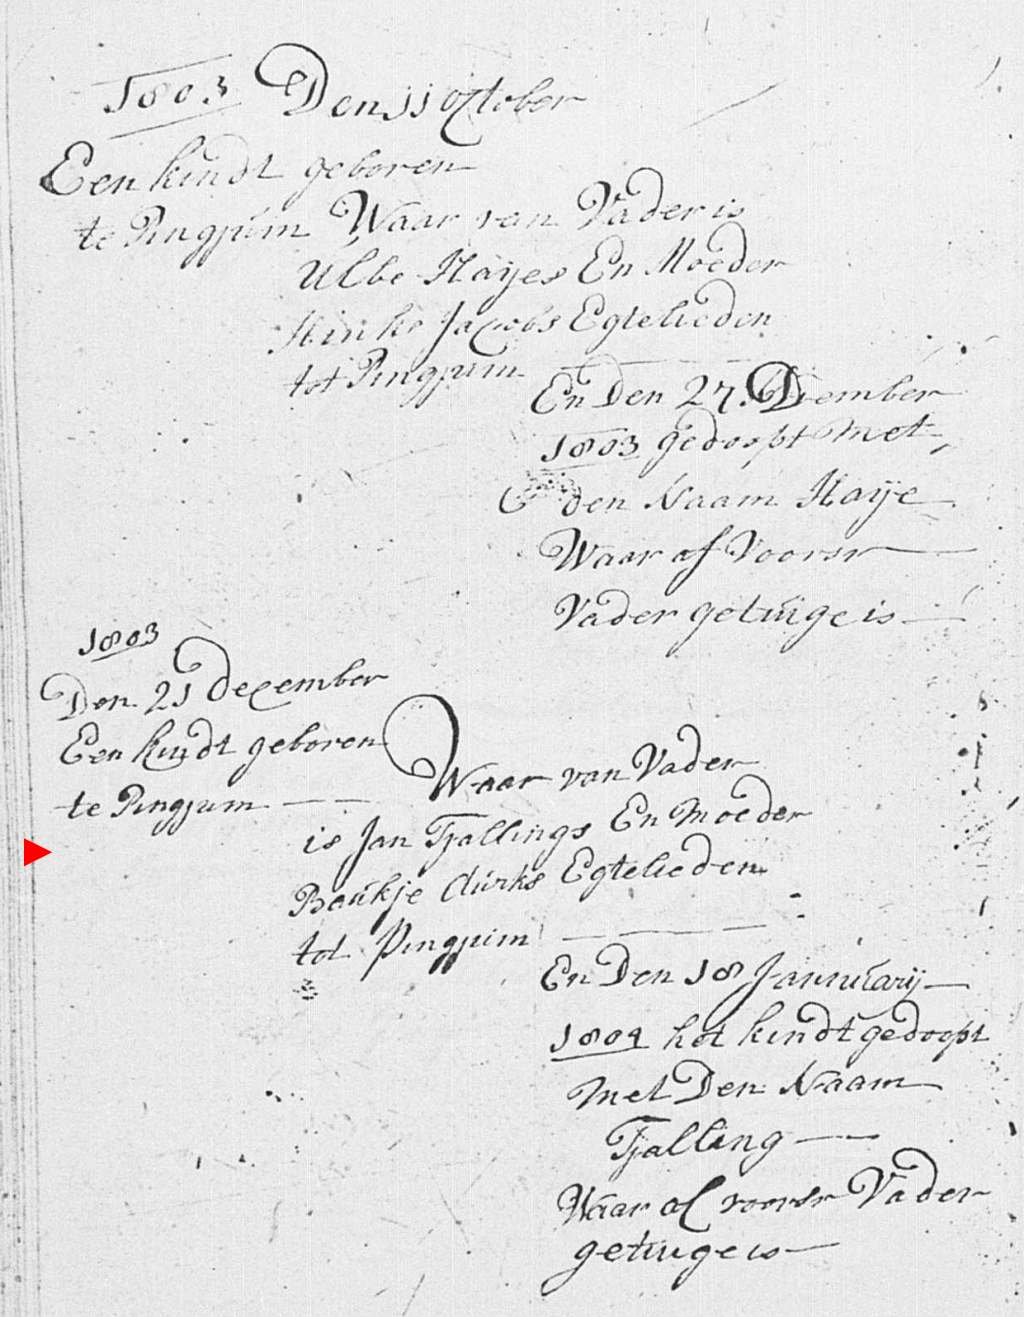 1803 Den 11 October
Een kindt geboren
te Pingjum Waar van Vader is
Ulbe Haijes En Moeder
Hinke Jacobs Egtelieden
tot Pingjum
En Den 27. December
1803 gedoopt met
den Naam Haije
Waar af Voorsr
Vader getuige is
1803
Den 21 December
Een kindt geboren
te Pingjum Waar van Vader
is Jan Tjallings En Moeder
Baukje Clurks Egtelieden
tot Pingjum
En Den 18 Jannuarij
1804 het kindt gedoopt
met Den Naam
Tjalling
Waar af voorsr Vader
getuige is